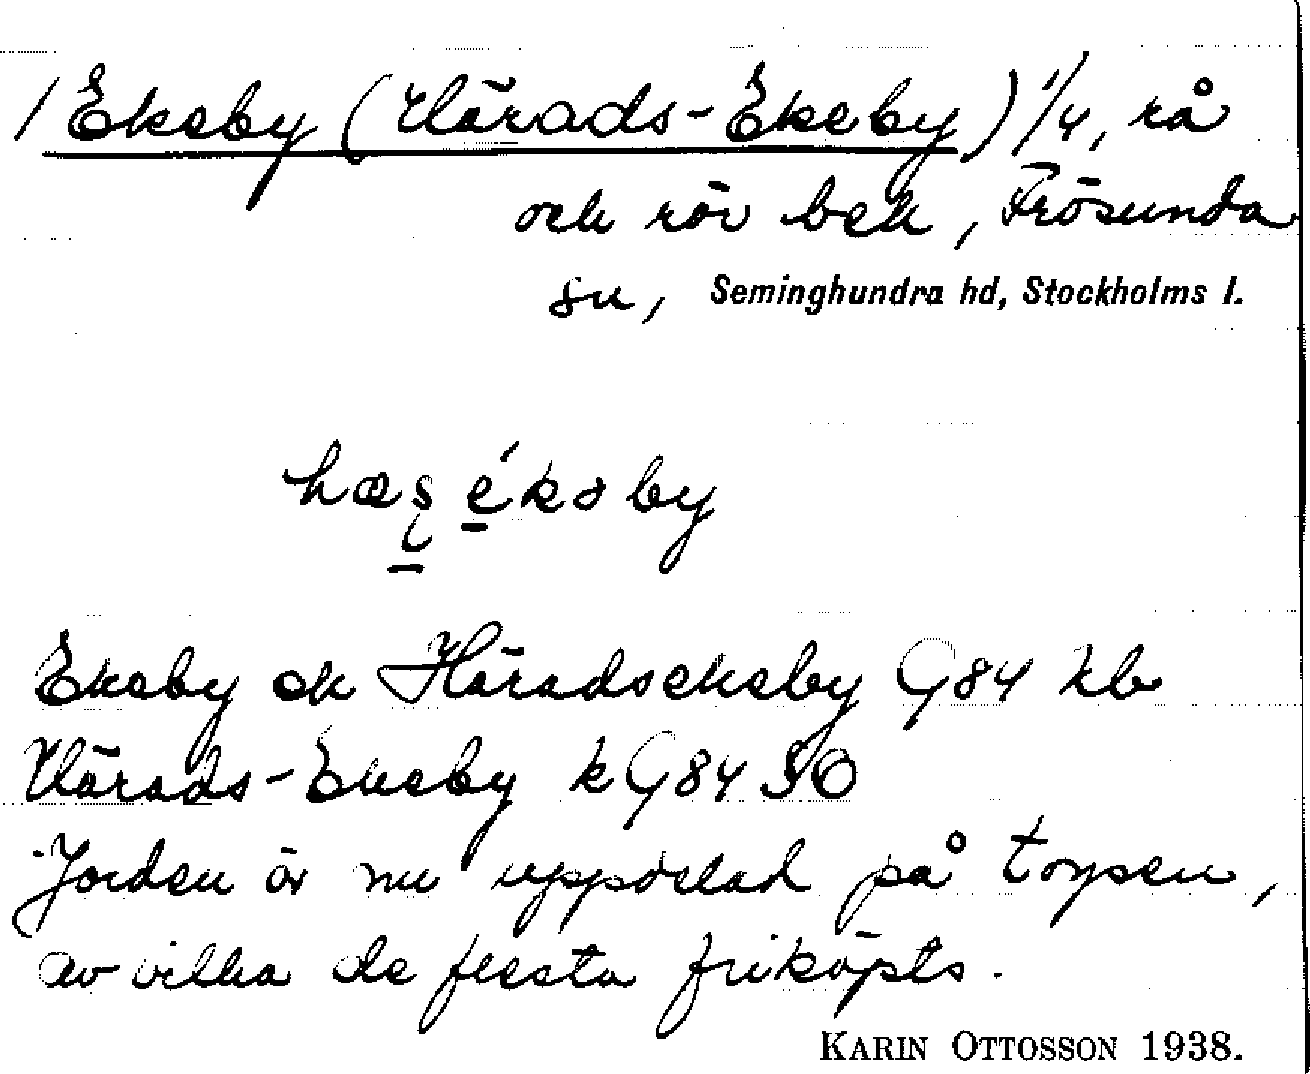 1 Ekeby (Härads-Ekeby) 1/4, rå
och rör bek, Frösunda
sn, Seminghundra hd, Stockholms l.
hæʂ ékəby
Ekeby ok Häradsekeby G84 kb
Härads-Ekeby k G84 SO
Jorden är nu uppdelad på torpen,
av vilka de flesta friköpts.
KARIN OTTOSSON 1938.